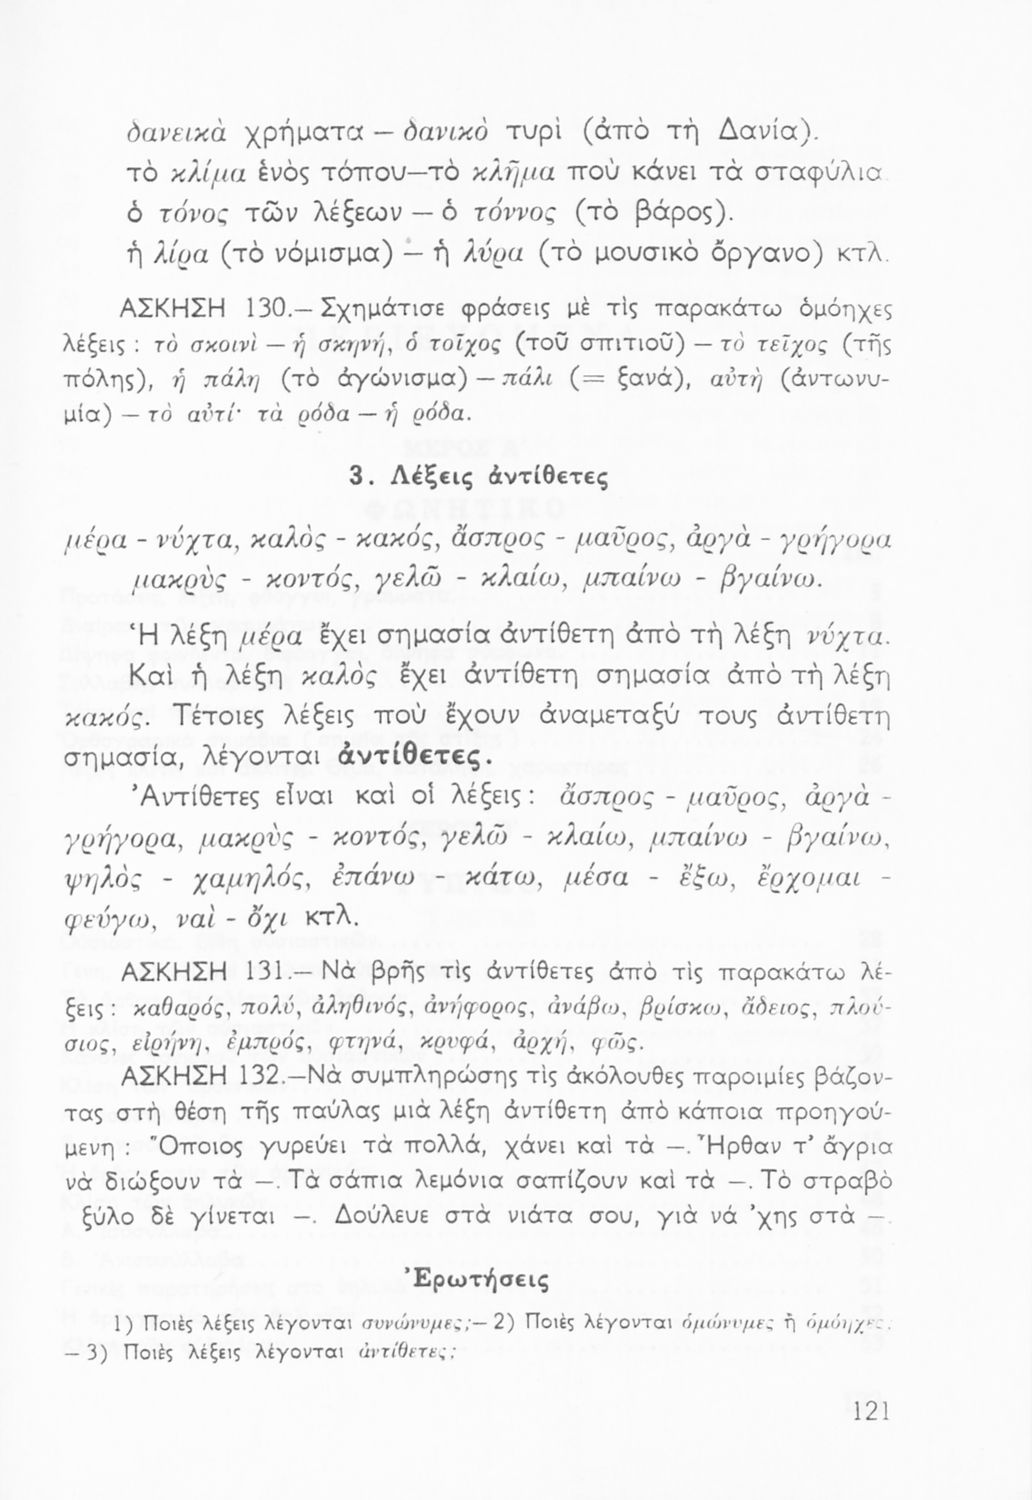 δανεικὰ χρήματα – δανικὸ τυρὶ (ἀπὸ τὴ Δανία).
τὸ κλίμα ἑνὸς τόπου–τὸ κλῆμα ποὺ κάνει τὰ σταφύλια
ὁ τόνος τῶν λέξεων – ὁ τόννος (τὸ βάρος).
ἡ λίρα (τὸ νόμισμα) – ἡ λύρα (τὸ μουσικὸ ὄργανο) κτλ.
ΑΣΚΗΣΗ 130.– Σχημάτισε φράσεις μὲ τὶς παρακάτω ὁμόηχες
λέξεις : τὸ σκοινὶ – ἡ σκηνή, ὁ τοῖχος (τοῦ σπιτιοῦ) – τὸ τεῖχος (τῆς
πόλης), ἡ πάλη (τὸ ἀγώνισμα) – πάλι (= ξανά), αὐτὴ (ἀντωνυ-
μία) – τὸ αὐτί· τὰ ρόδα – ἡ ρόδα.
3. Λέξεις ἀντίθετες
μέρα - νύχτα, καλὸς - κακός, ἄσπρος - μαῦρος, ἀργὰ - γρήγορα
μακρὺς - κοντός, γελῶ - κλαίω, μπαίνω - βγαίνω.
Ἡ λέξη μέρα ἔχει σημασία ἀντίθετη ἀπὸ τὴ λέξη νύχτα.
Καὶ ἡ λέξη καλὸς ἔχει ἀντίθετη σημασία ἀπὸ τὴ λέξη
κακός. Τέτοιες λέξεις ποὺ ἔχουν ἀναμεταξύ τους ἀντίθετη
σημασία, λέγονται ἀντίθετες.
Ἀντίθετες εἶναι καὶ οἱ λέξεις : ἄσπρος - μαῦρος, ἀργὰ -
γρήγορα, μακρὺς - κοντός, γελῶ - κλαίω, μπαίνω - βγαίνω,
ψηλὸς - χαμηλός, ἐπάνω - κάτω, μέσα - ἔξω, ἔρχομαι -
φεύγω, ναὶ - ὄχι κτλ.
ΑΣΚΗΣΗ 131.– Νὰ βρῆς τὶς ἀντίθετες ἀπὸ τὶς παρακάτω λέ-
ξεις : καθαρός, πολύ, ἀληθινός, ἀνήφορος, ἀνάβω, βρίσκω, ἄδειος, πλού-
σιος, εἰρήνη, ἐμπρός, φτηνά, κρυφά, ἀρχή, φῶς.
ΑΣΚΗΣΗ 132.–Νὰ συμπληρώσης τὶς ἀκόλουθες παροιμίες βάζον-
τας στὴ θέση τῆς παύλας μιὰ λέξη ἀντίθετη ἀπὸ κάποια προηγού-
μενη : Ὅποιος γυρεύει τὰ πολλά, χάνει καὶ τὰ –. Ἦρθαν τ᾽ ἄγρια
νὰ διώξουν τὰ –. Τὰ σάπια λεμόνια σαπίζουν καὶ τὰ –. Τὸ στραβὸ
ξύλο δὲ γίνεται –. Δούλευε στὰ νιάτα σου, γιὰ νά ᾽χης στὰ –.
Ἐρωτήσεις
1) Ποιὲς λέξεις λέγονται συνώνυμες;– 2) Ποιὲς λέγονται ὁμώνυμες ἢ ὁμόηχες.
– 3) Ποιὲς λέξεις λέγονται ἀντίθετες;
121